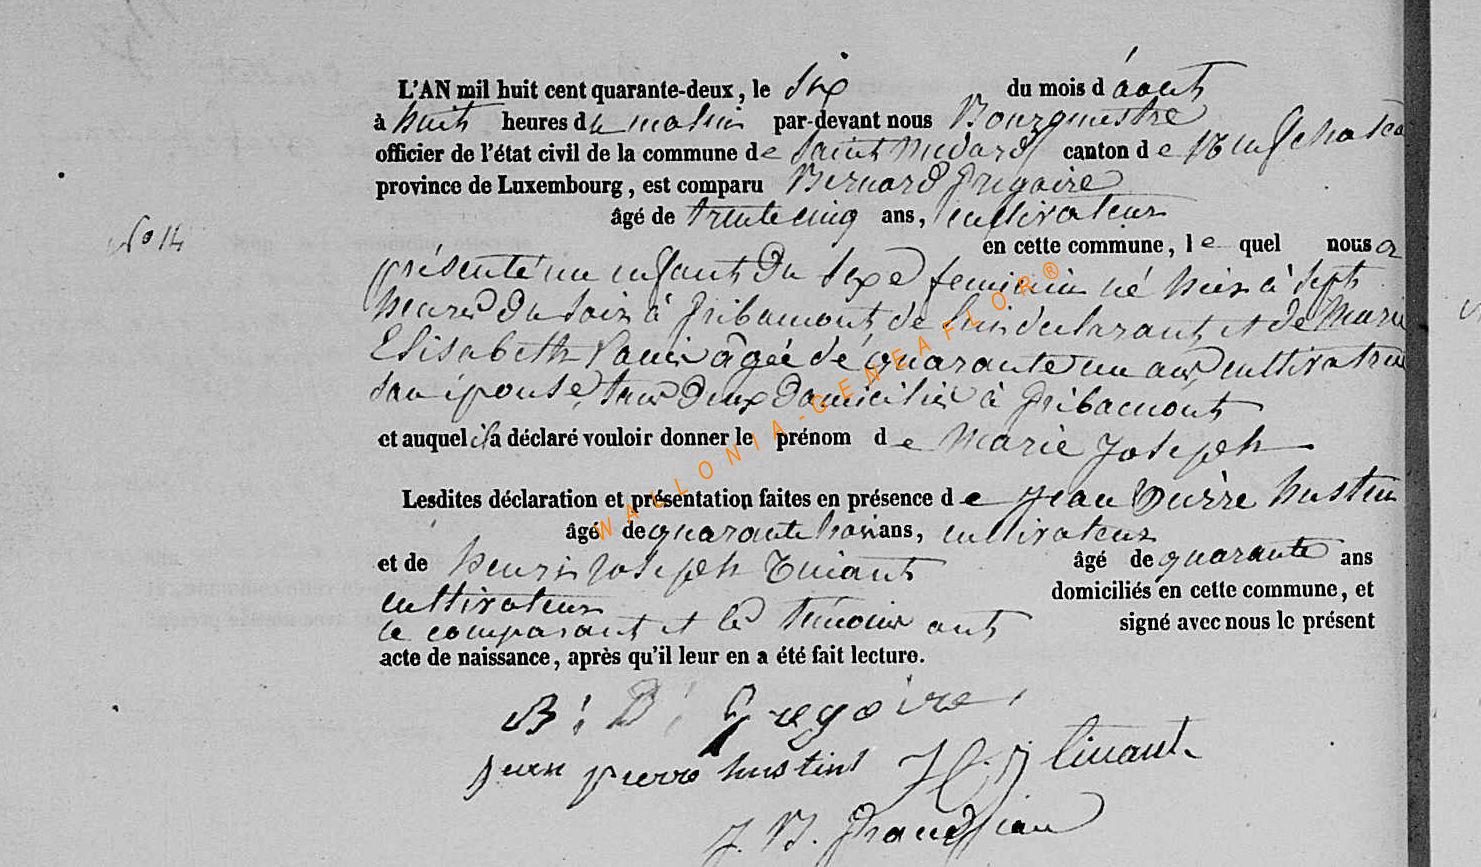 L'AN mil huit cent quarante-deux, le six du mois d'août
à huit heures du matin par-devant nous Bourgmestre
officier de l'état civil de la commune de Saint Médard canton de Neufchateau
province de Luxembourg, est comparu Bernard Grégoire
âgé de trente cinq ans, cultivateur
N° 14
en cette commune, lequel nous a
présenté un enfant du sexe feminin né hier à sept
heures du soir à Gribaumont de lui déclarant et de Marie
Elisabeth âgée de quarante un ans cultivatrice
son épouse, tous deux domiciliés à Gribaumont
et auquel il a déclaré vouloir donner le prénom de Marie Joseph
Lesdites déclaration et présentation faites en présence de Jean Pierre Hustin
âgé de quarante trois ans, cultivateur
et de Henri Joseph Tinant âgé de quarante ans
cultivateur domiciliés en cette commune, et
le comparant et les témoins ont signé avec nous le présent
acte de naissance, après qu'il leur en a été fait lecture.
B: B: Gregoire
jean pierre hustin H. J. tinant
J. B. Grandjean
WALLONIA-GENEAFLOR®